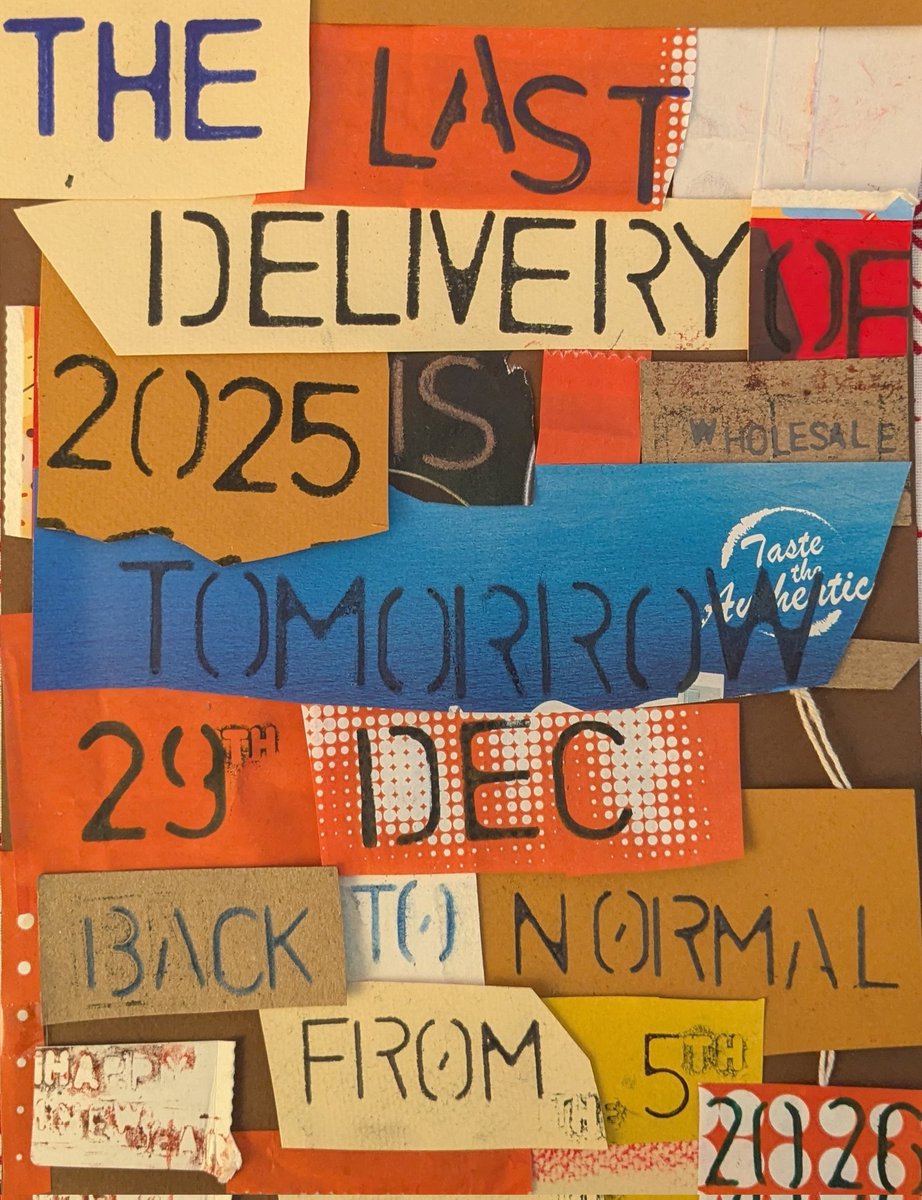 THE LAST
DELIVERY OF
2025 IS
WHOLESALE
Taste
the
Authentic
TOMORROW
29TH DEC
BACK TO NORMAL
FROM THE 5TH
HAPPY
NEW YEAR
2026